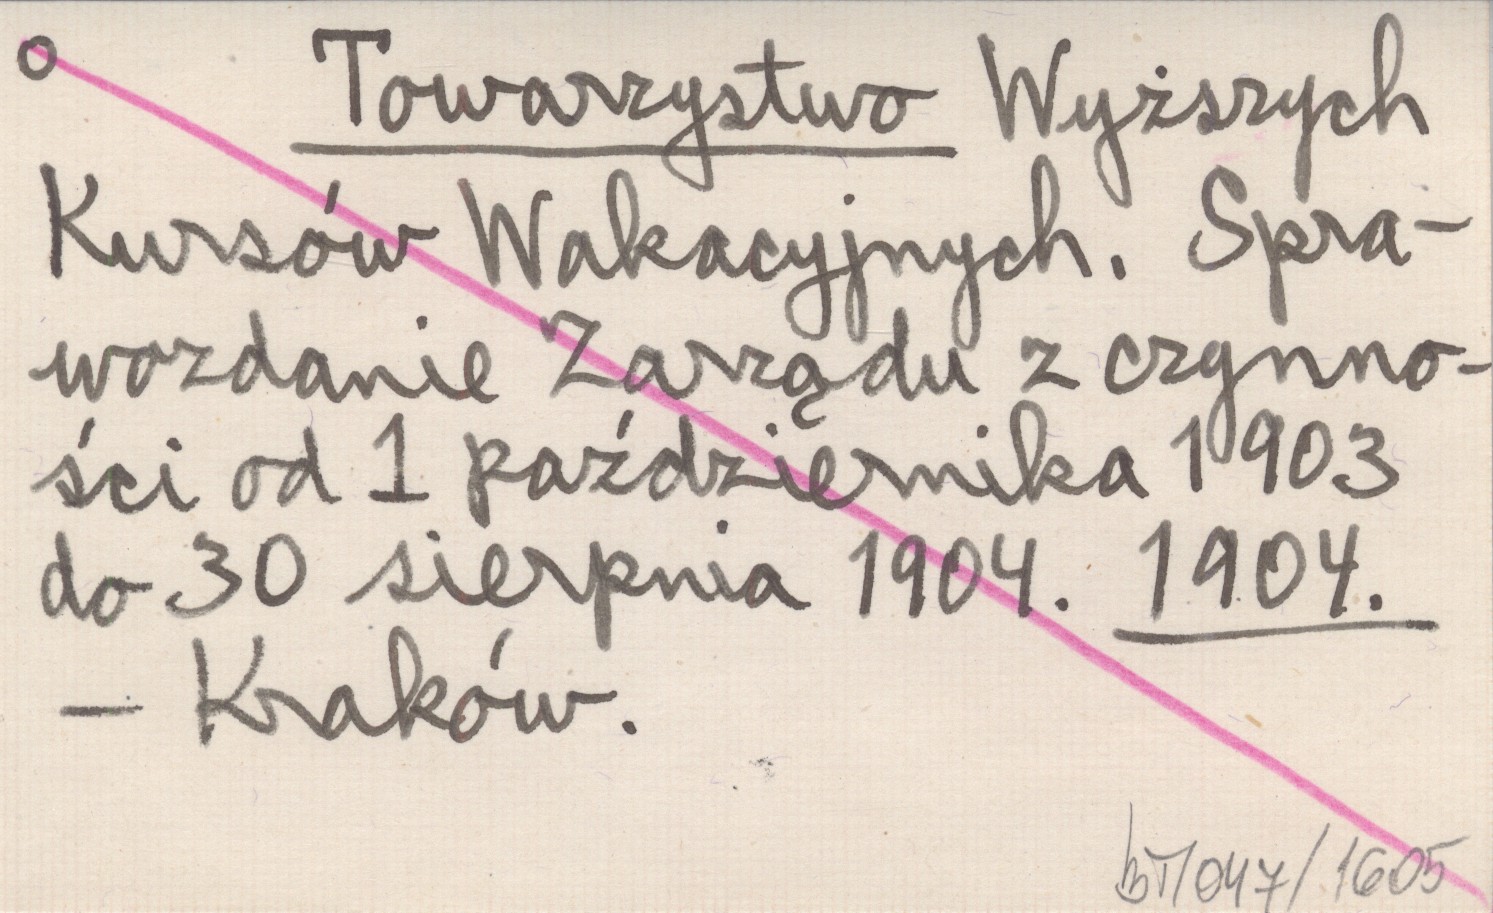 o Towarzystwo Wyższych
Kursów Wakacyjnych. Spra-
wozdanie Zarządu z czynno-
ści od 1 października 1903
do 30 sierpnia 1904. 1904.
— Kraków.
/047/1605